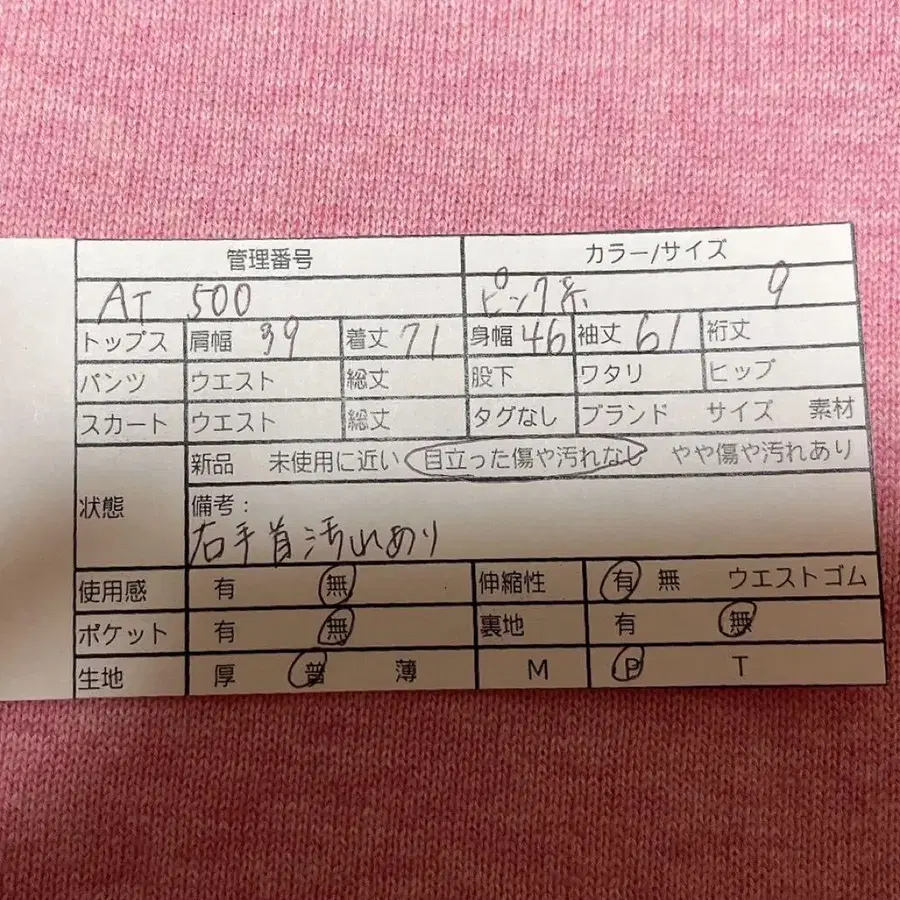 管理番号 カラー/サイズ
AT 500 ピンク系 9
トップス 肩幅 39 着丈 71 身幅 46 袖丈 61 裄丈
パンツ ウエスト 総丈 股下 ワタリ ヒップ
スカート ウエスト 総丈 タグなし ブランド サイズ 素材
新品 未使用に近い 目立った傷や汚れなし やや傷や汚れあり
状態 備考:
右手首汚れあり
使用感 有 無 伸縮性 有 無 ウエストゴム
ポケット 有 無 裏地 有 無
生地 厚 普 薄 M P T